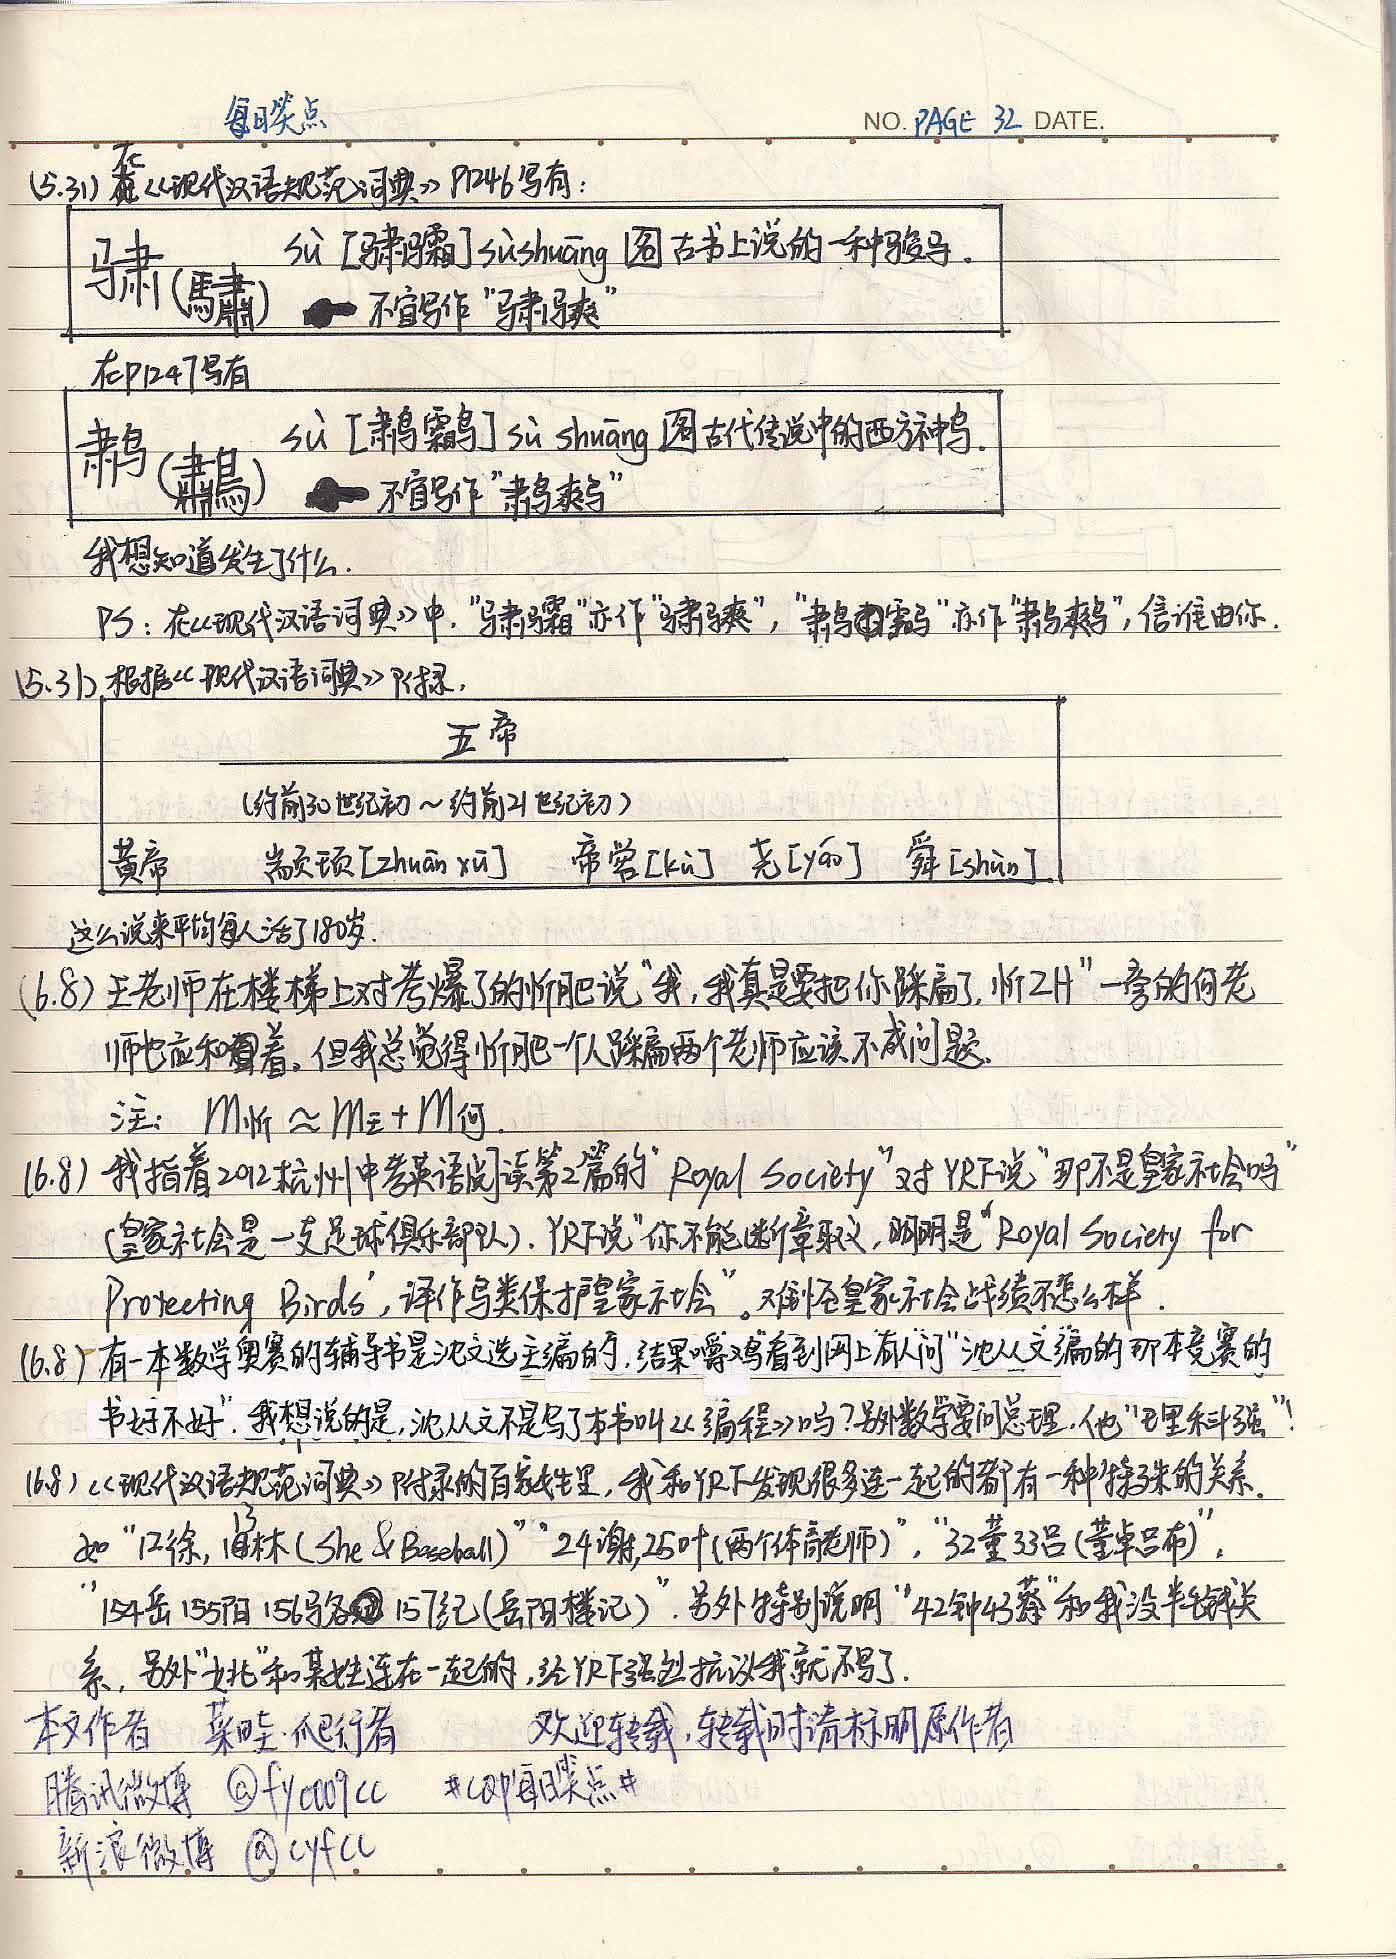 每日笑点
NO. PAGE 32 DATE.
(5.31) 在《现代汉语规范词典》P1246写有:
骕(驌) sù [骕骦] sùshuāng 名 古书上说的一种骏马.
☛ 不宜写作"骕𬴊"
在P1247写有
鹔(鷫) sù [鹔鹴] sù shuāng 名 古代传说中的西方神鸟.
☛ 不宜写作"鹔鷞"
我想知道发生了什么.
PS: 在《现代汉语词典》中,"骕骦"亦作"骕𬴊","鹔鹴"亦作"鹔鷞",信谁由你.
(5.31) 根据《现代汉语词典》附录,
五帝
(约前30世纪初～约前21世纪初)
黄帝 颛顼[zhuān xū] 帝喾[kù] 尧[yáo] 舜[shùn]
这么说来平均每人活了180岁.
(6.8) 王老师在楼梯上对考爆了的忻肥说"我,我真是要把你踩扁了,忻ZH"一旁的何老
师也应和着。但我总觉得忻肥一个人踩扁两个老师应该不成问题.
注: M忻 ≈ M王 + M何.
(6.8) 我指着2012杭州中考英语阅读第2篇的"Royal Society"对YR下说"那不是皇家社会吗"
(皇家社会是一支足球俱乐部队). YR下说"你不能断章取义,明明是'Royal Society for
Protecting Birds',译作鸟类保护皇家社会"。难怪皇家社会战绩不怎么样.
(6.8) 有一本数学奥赛的辅导书是沈文选主编的,结果"嚼鸡"看到网上有人问"沈从文编的那本竞赛的
书好不好". 我想说的是,沈从文不是写了本书叫《编程》吗?另外数学要问总理,他"理科强"!
(6.8) 《现代汉语规范词典》附录的百家姓里,我和YR下发现很多连一起的都有一种特殊的关系.
如"12徐,13林(She & Baseball)" "24谢,25叶(两个体育老师)","32董33吕(董卓吕布)",
"154岳155阳156骆157纪(岳阳楼记)". 另外特别说明"42钟43蔡"和我没半毛钱关
系,另外"姚"和某姓连在一起的,经YR下强烈抗议我就不写了.
本文作者 菜哇·爬行者 欢迎转载,转载时请标明原作者
腾讯微博 @fyc009cc #CQP每日笑点#
新浪微博 @cyfcc